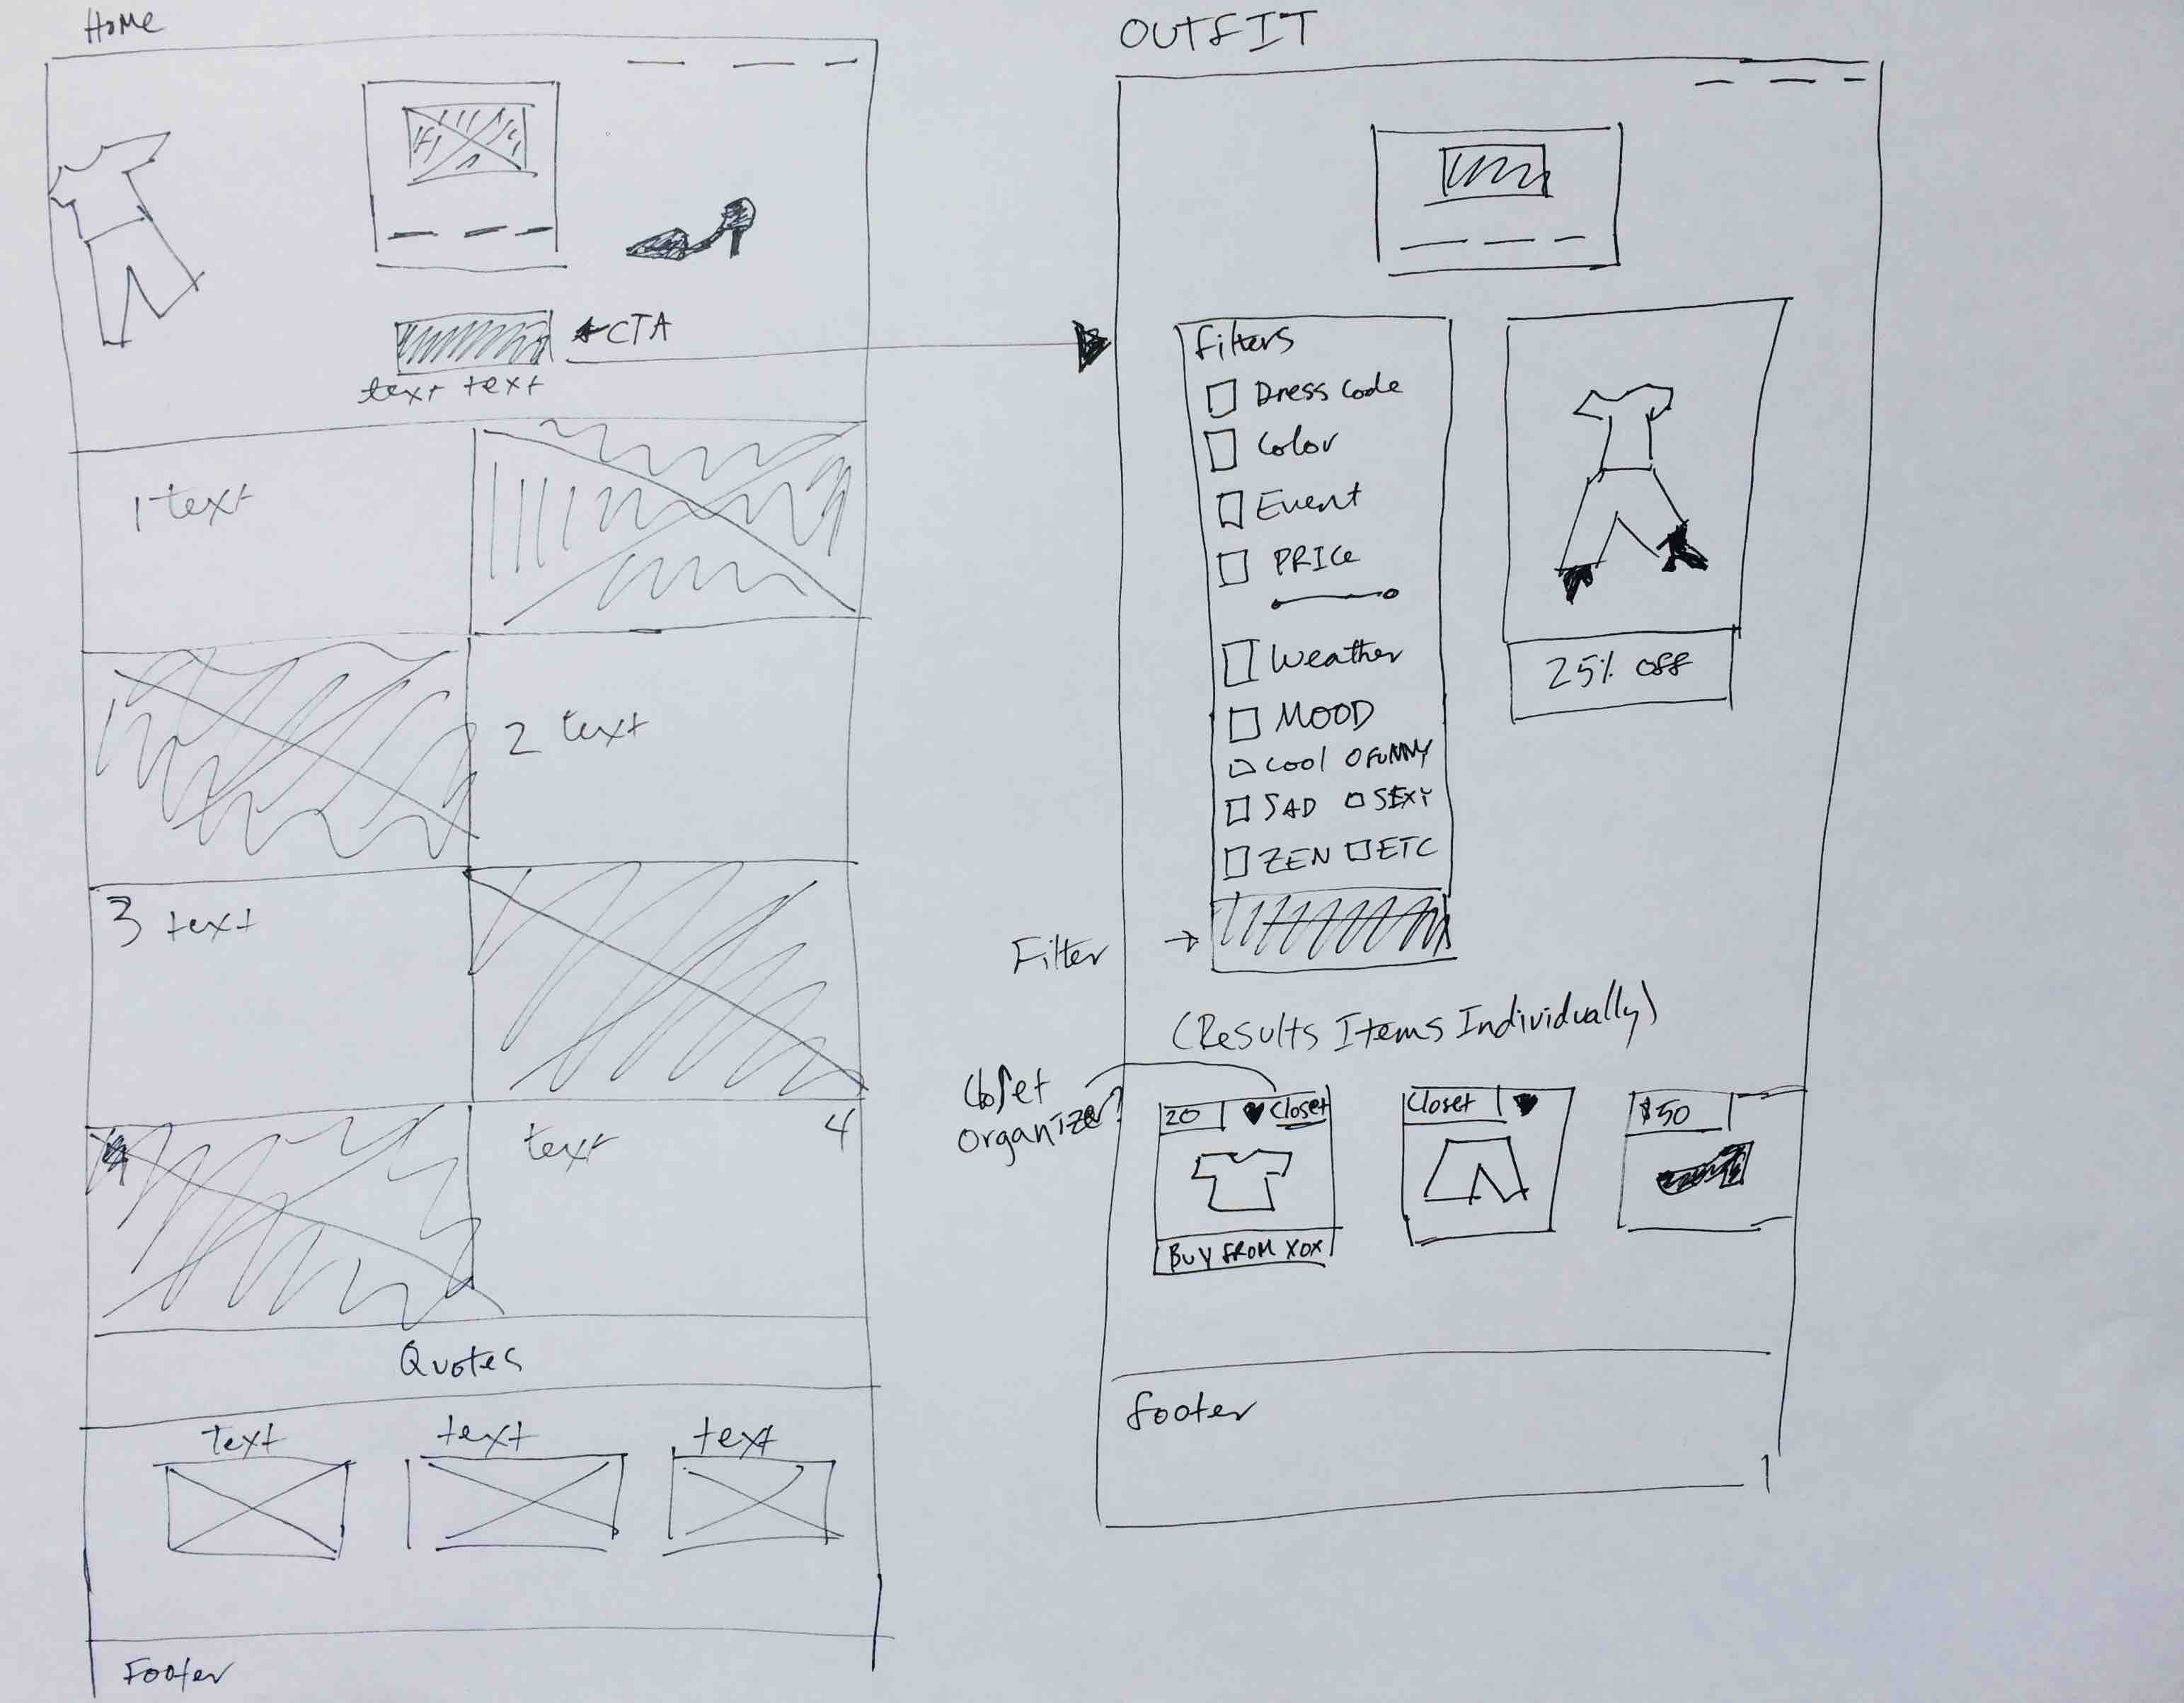 Home
CTA
text text
1 text
2 text
3 text
text 4
Quotes
text text text
Footer
OUTFIT
Filters
Dress Code
Color
Event
PRICE
Weather
MOOD
Cool FUNNY
SAD SEXY
ZEN ETC
Filter
25% OFF
(Results Items Individually)
Closet
Organizer?
20 ♥ Closet
BUY FROM XOX
Closet ♥
$50
footer